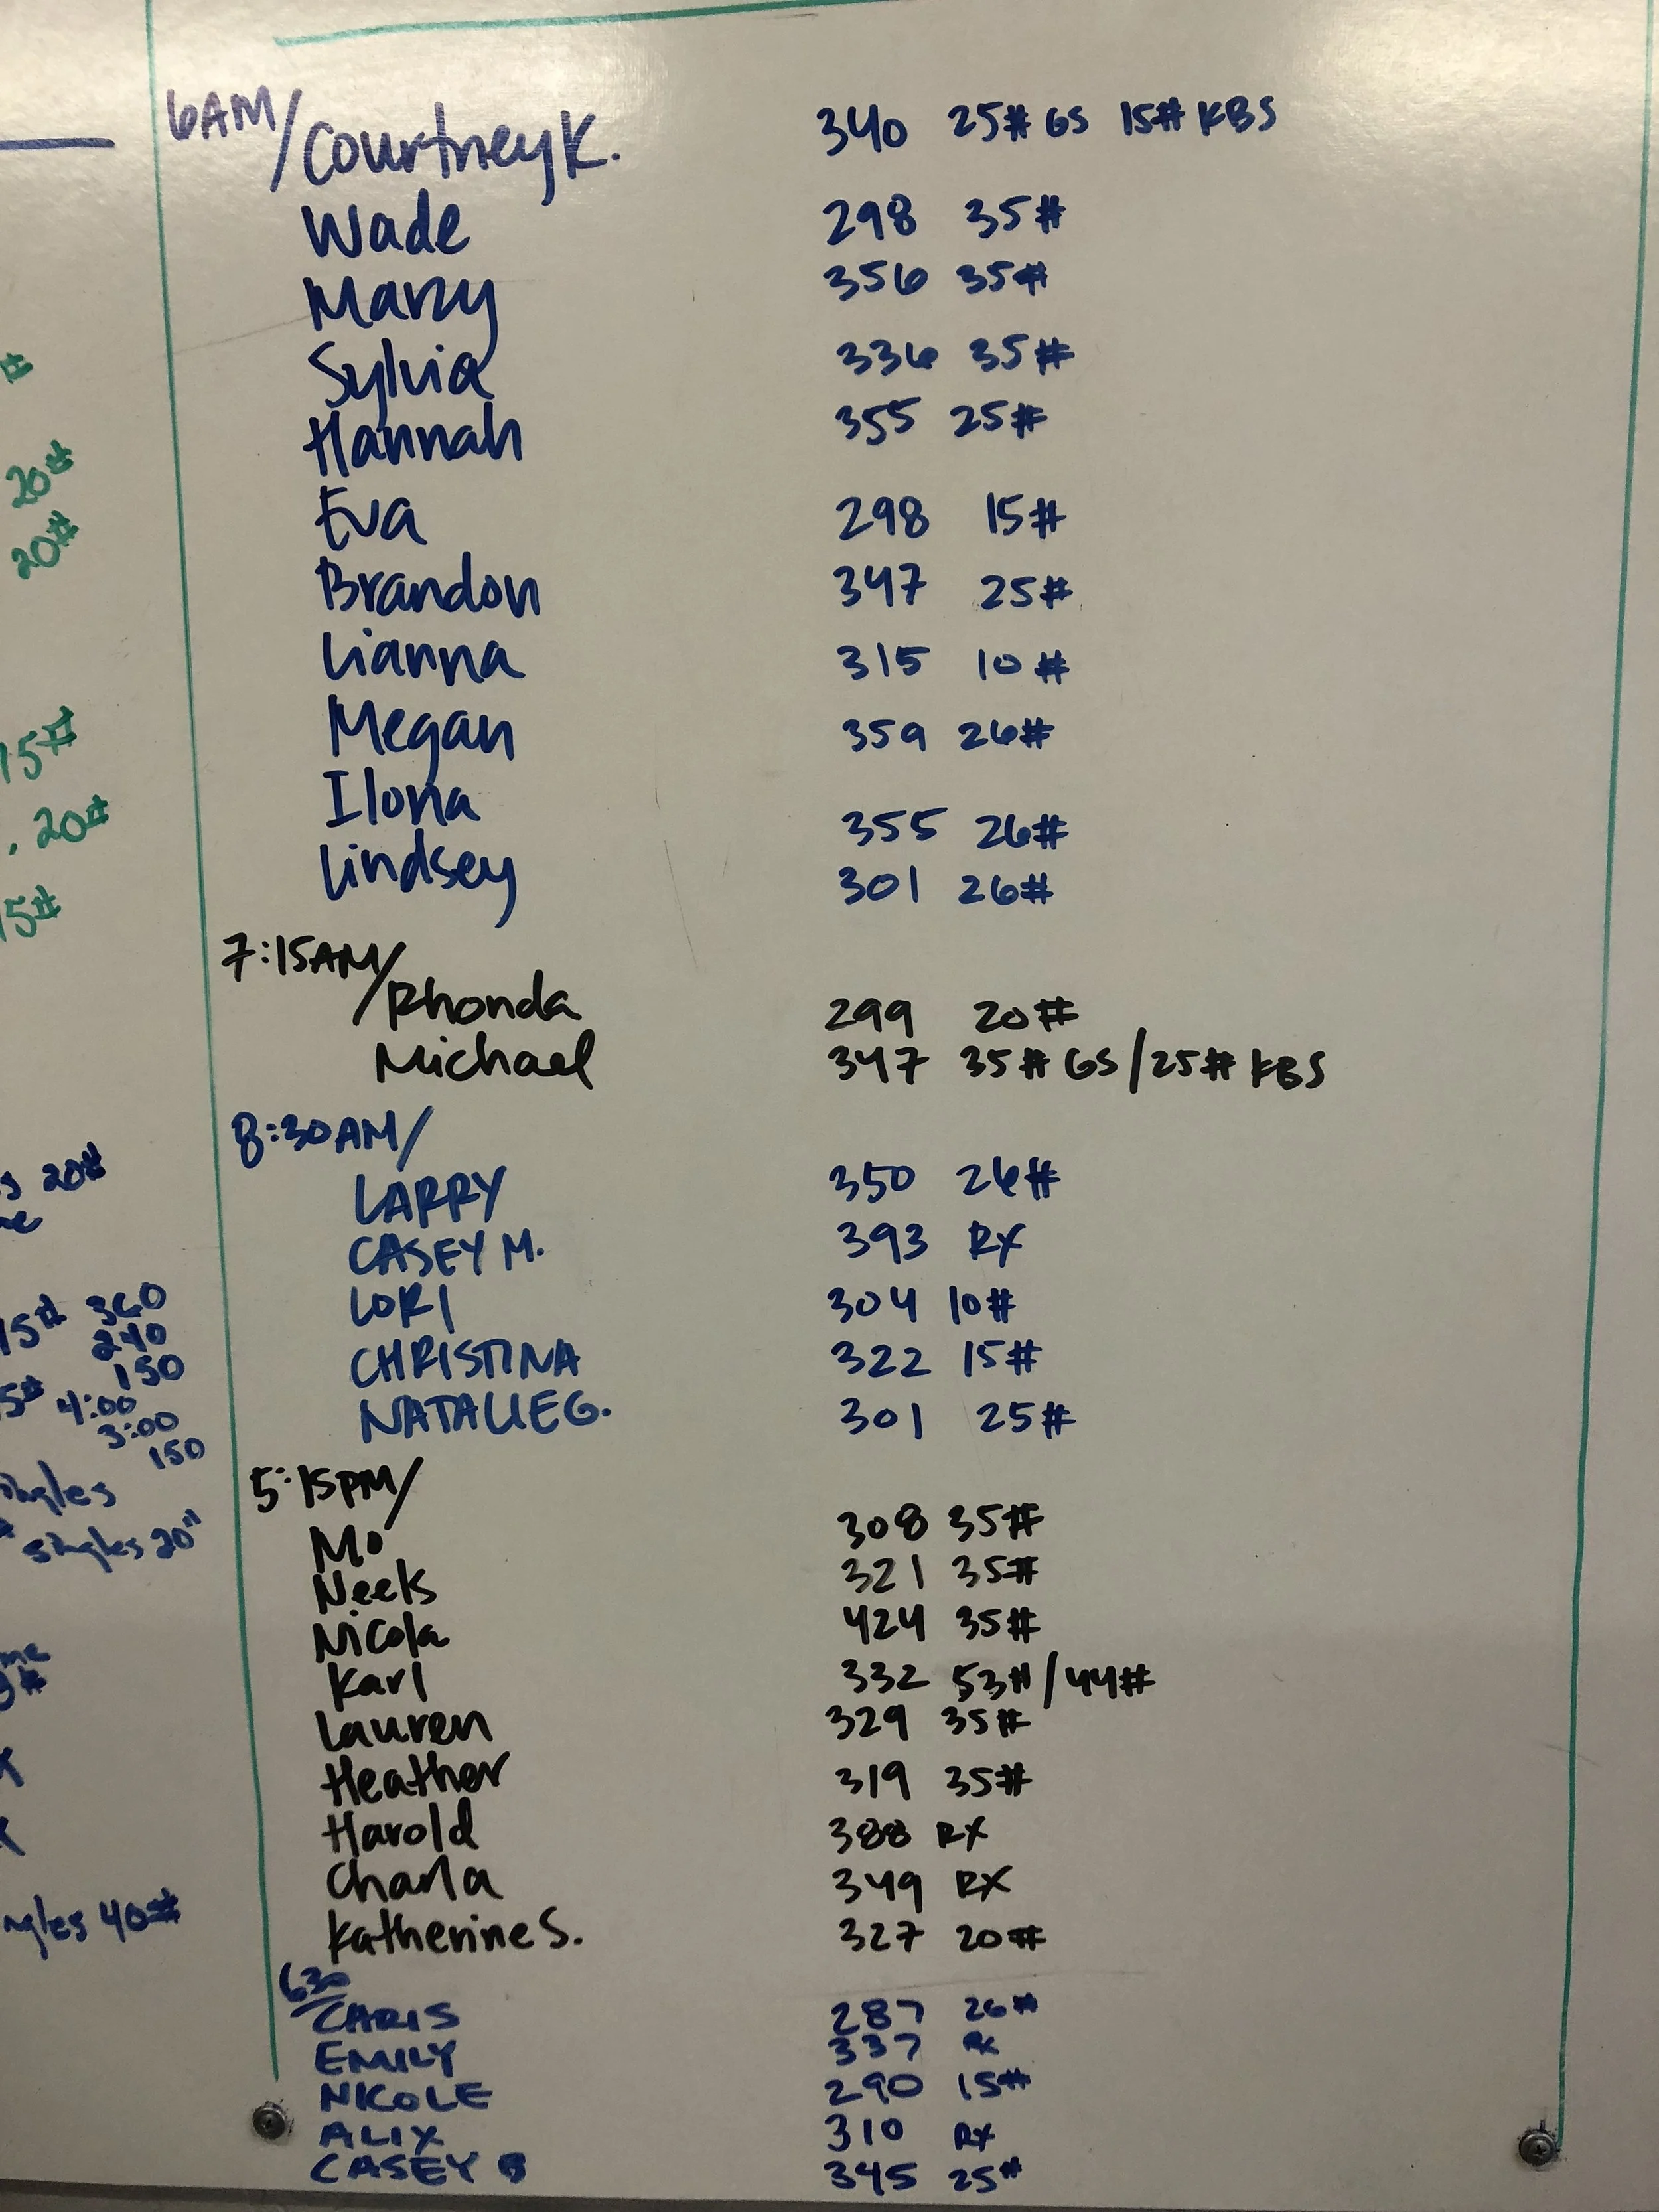 6AM/Courtney K. 340 25# GS 15# KBS
Wade 298 35#
Marzy 356 35#
Sylvia 336 35#
Hannah 355 25#
Eva 298 15#
Brandon 347 25#
Lianna 315 10#
Megan 359 26#
Ilona 355 26#
Lindsey 301 26#
7:15AM/Rhonda 299 20#
Michael 347 35# GS/25# KBS
8:30AM/
LARRY 350 26#
CASEY M. 393 RX
LORI 304 10#
CHRISTINA 322 15#
NATALIE G. 301 25#
5:15PM/
Mo 308 35#
Neels 321 35#
Nicola 424 35#
Karl 332 53#/44#
Lauren 329 35#
Heather 319 35#
Harold 388 RX
Charla 349 RX
Katherine S. 327 20#
630
CHRIS 287 26#
EMILY 337 RX
NICOLE 290 15#
ALIX 310 RX
CASEY 345 25#
#
20#
20#
15#
. 20#
5#
20#
15# 360
240
150
5# 4:00
3:00
150
singles 20"
40#